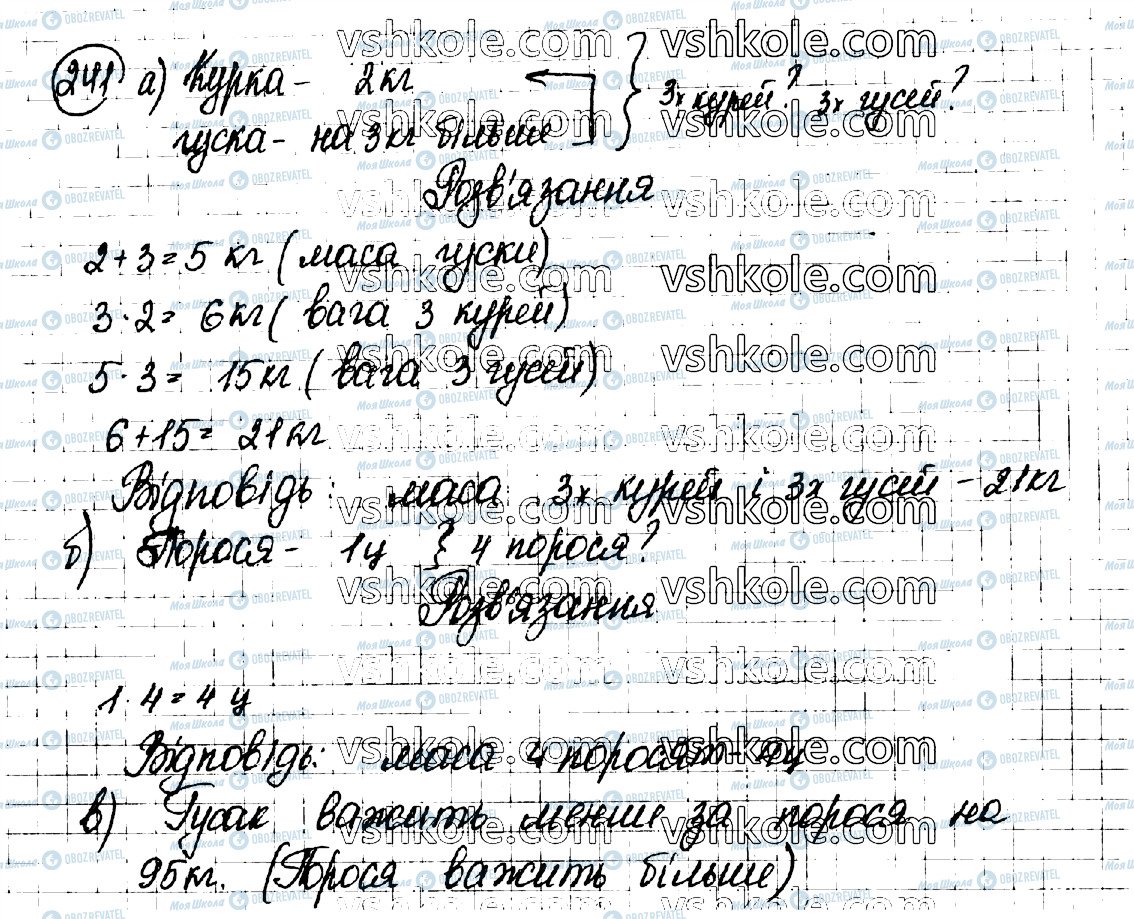 241 а) Курка - 2 кг } 3х курей? 3х гусей?
гуска - на 3 кг більше
Розв'язання
2+3=5 кг (маса гуски)
3·2= 6 кг (вага 3 курей)
5·3= 15 кг (вага 3 гусей)
6+15= 21 кг
Відповідь: маса 3х курей і 3х гусей - 21 кг
б) Порося - 1 ц } 4 порося?
Розв'язання
1·4=4 ц
Відповідь: маса 4 поросят - 4 ц
в) Гусак важить менше за порося на
95 кг. (Порося важить більше)